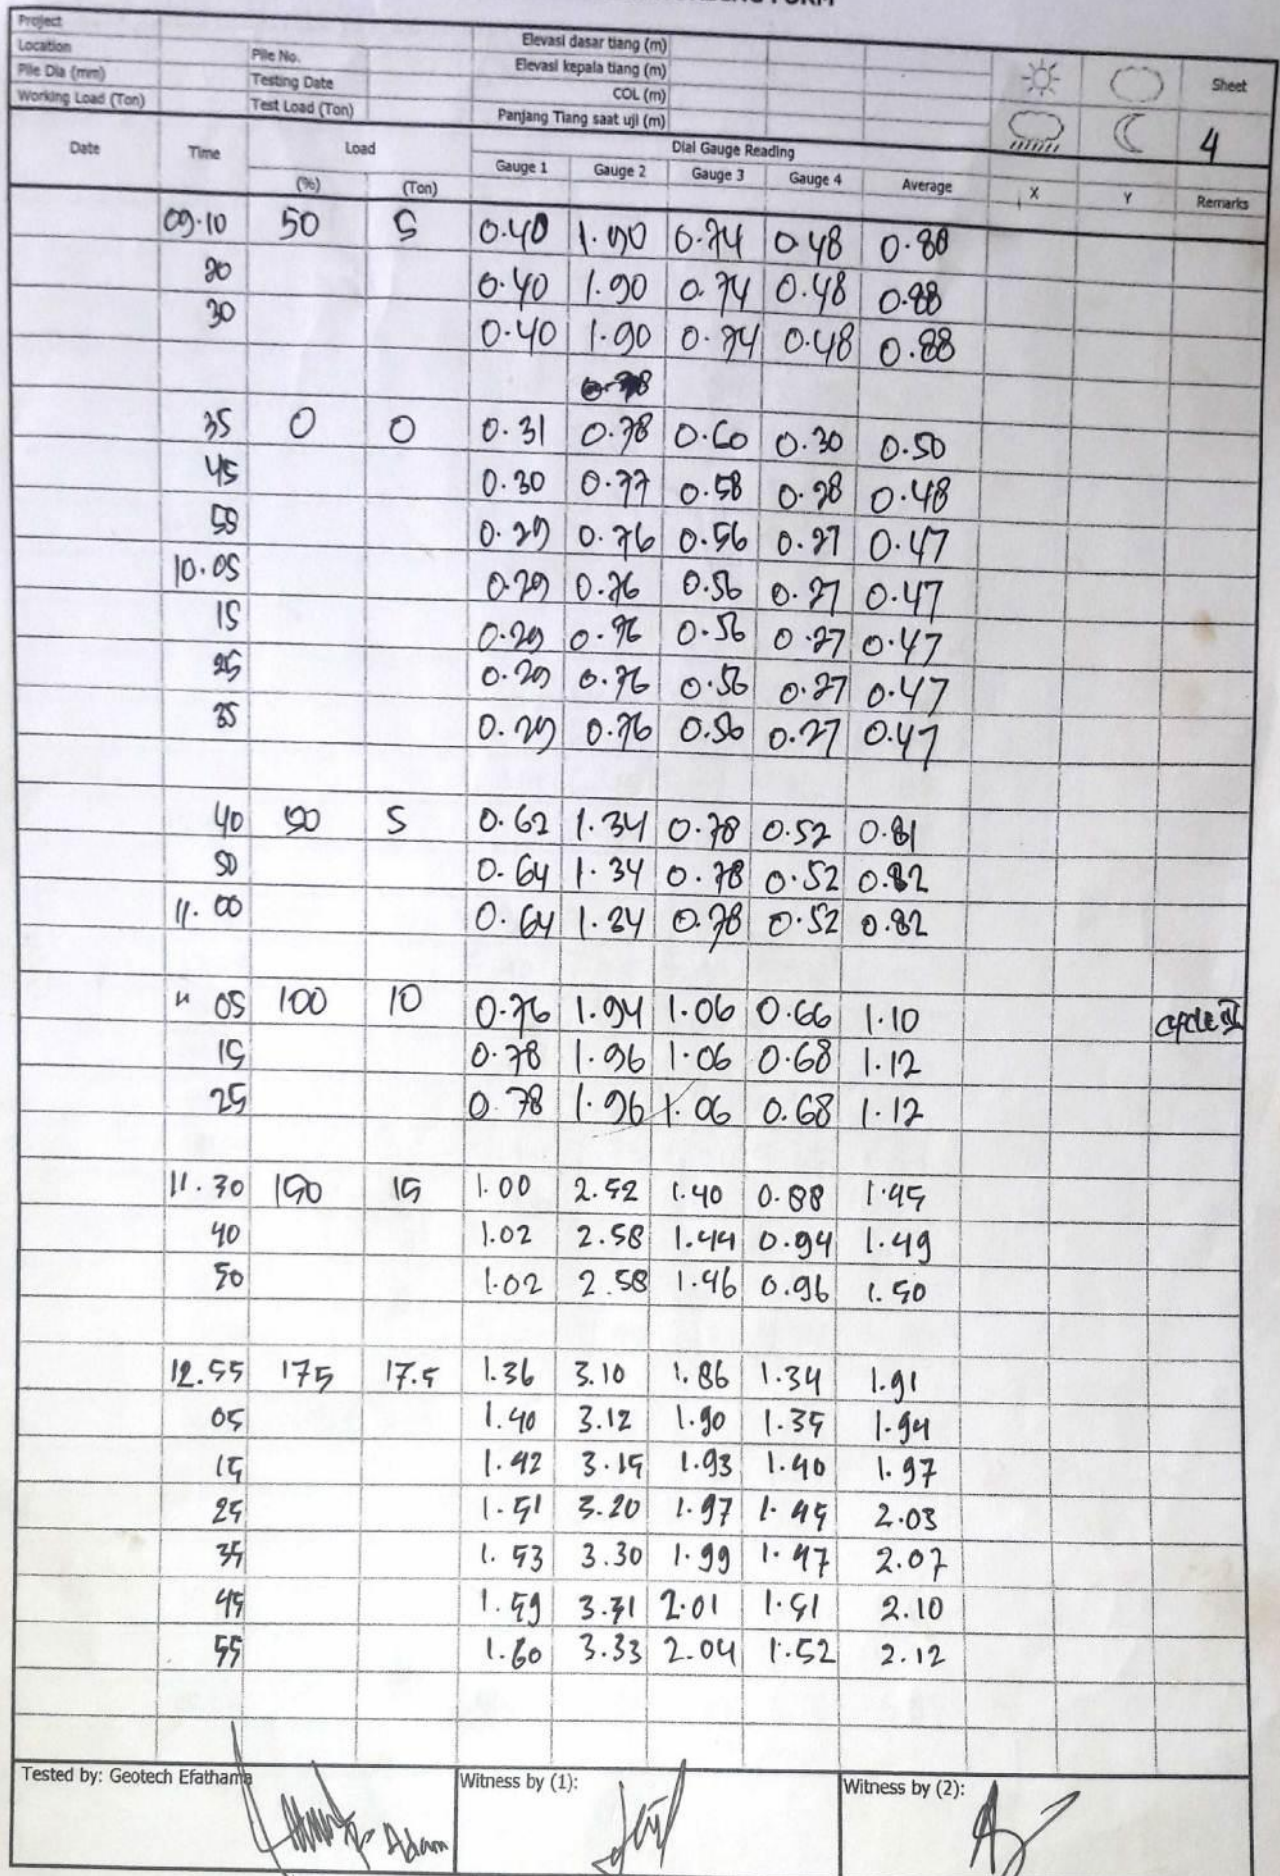 Project
Location Pile No. Elevasi dasar tiang (m)
Pile Dia (mm) Testing Date Elevasi kepala tiang (m) Sheet
Working Load (Ton) Test Load (Ton) COL (m)
Panjang Tiang saat uji (m) 4
Date Time Load Dial Gauge Reading
(%) (Ton) Gauge 1 Gauge 2 Gauge 3 Gauge 4 Average X Y Remarks
09.10 50 5 0.40 1.90 0.74 0.48 0.88
20 0.40 1.90 0.74 0.48 0.88
30 0.40 1.90 0.74 0.48 0.88
35 0 0 0.31 0.78 0.60 0.30 0.50
45 0.30 0.77 0.58 0.28 0.48
55 0.29 0.76 0.56 0.27 0.47
10.05 0.29 0.76 0.56 0.27 0.47
15 0.29 0.76 0.56 0.27 0.47
25 0.29 0.76 0.56 0.27 0.47
35 0.29 0.76 0.56 0.27 0.47
40 50 5 0.62 1.34 0.78 0.52 0.81
50 0.64 1.34 0.78 0.52 0.82
11.00 0.64 1.34 0.78 0.52 0.82
" 05 100 10 0.76 1.94 1.06 0.66 1.10 cycle
15 0.78 1.96 1.06 0.68 1.12
25 0.78 1.96 1.06 0.68 1.12
11.30 150 15 1.00 2.52 1.40 0.88 1.45
40 1.02 2.58 1.44 0.94 1.49
50 1.02 2.58 1.46 0.96 1.50
12.55 175 17.5 1.36 3.10 1.86 1.34 1.91
05 1.40 3.12 1.90 1.35 1.94
15 1.42 3.15 1.93 1.40 1.97
25 1.51 3.20 1.97 1.45 2.03
35 1.53 3.30 1.99 1.47 2.07
45 1.59 3.31 2.01 1.51 2.10
55 1.60 3.33 2.04 1.52 2.12
Tested by: Geotech Efathama Witness by (1): Witness by (2):
Adam